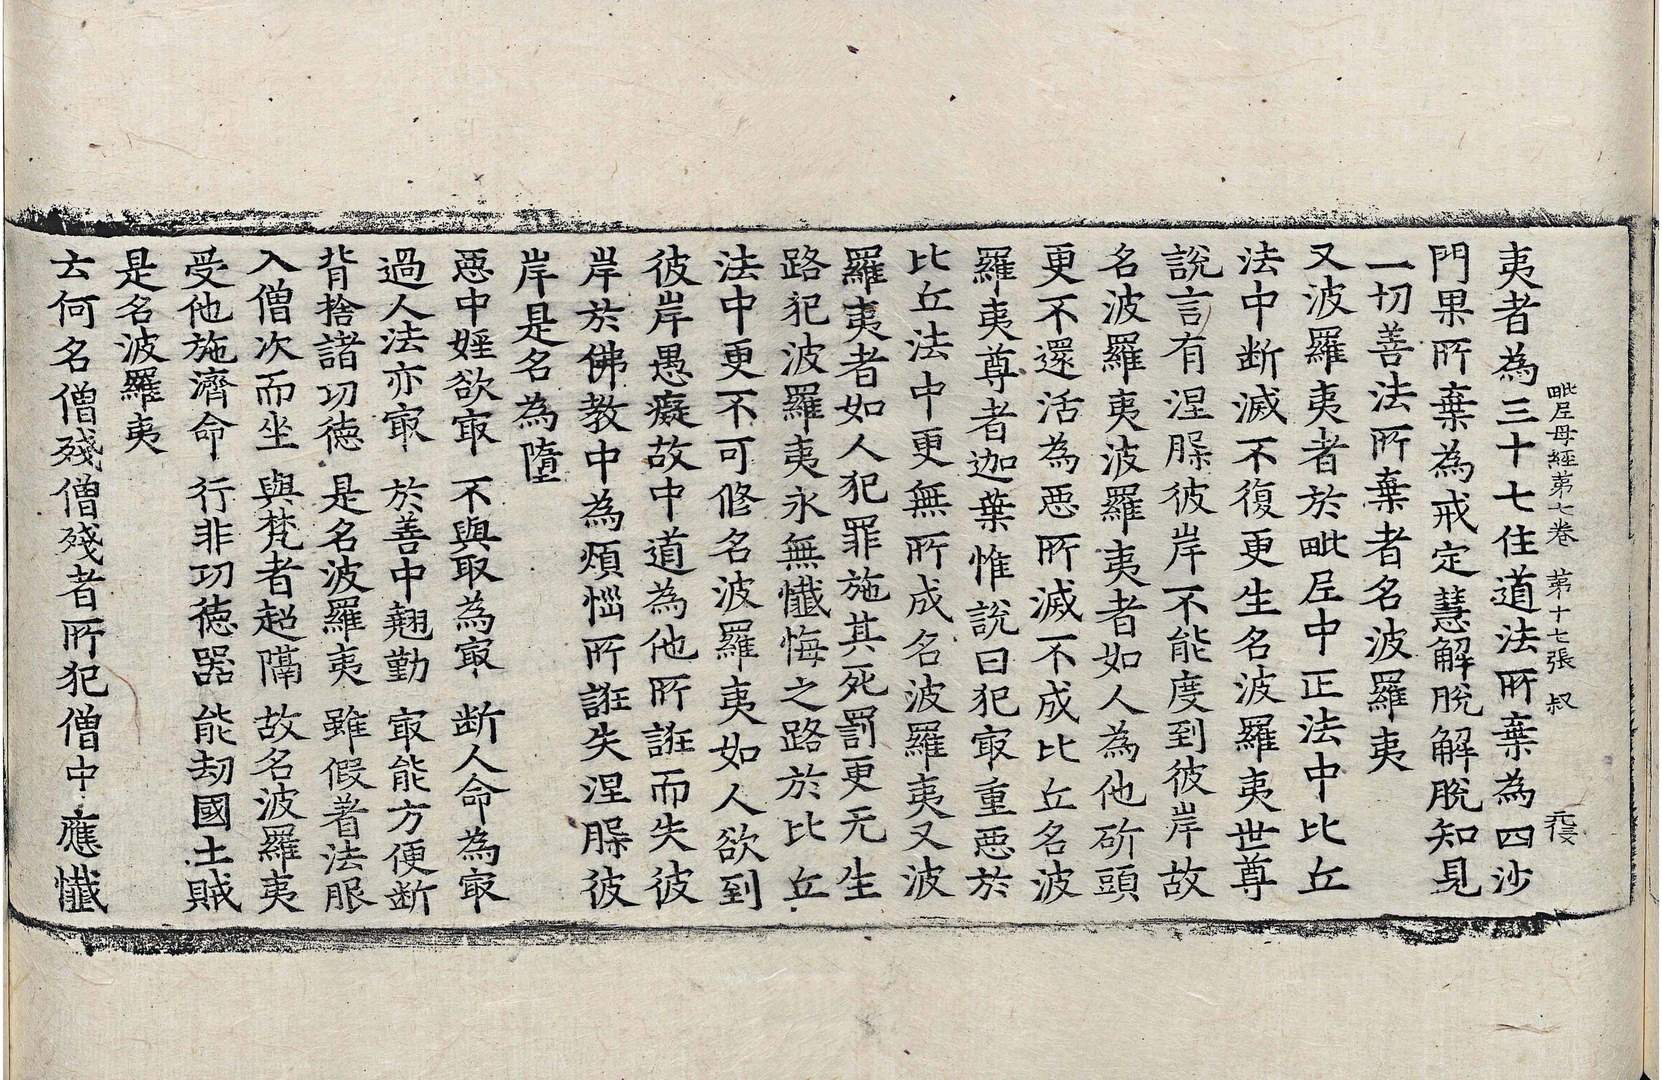 毗尼母經第七卷 第十七張 叔
夷者為三十七住道法所棄為四沙
門果所棄為戒定慧解脫解脫知見
一切善法所棄者名波羅夷
又波羅夷者於毗尼中正法中比丘
法中断滅不復更生名波羅夷世尊
說言有涅槃彼岸不能度到彼岸故
名波羅夷波羅夷者如人為他斫頭
更不還活為惡所滅不成比丘名波
羅夷尊者迦葉惟說曰犯㝡重惡於
比丘法中更無所成名波羅夷又波
羅夷者如人犯罪施其死罰更无生
路犯波羅夷永無懺悔之路於比丘
法中更不可修名波羅夷如人欲到
彼岸愚癡故中道為他所誑而失彼
岸於佛教中為煩惱所誑失涅槃彼
岸是名為墮
惡中婬欲㝡 不與取為㝡 断人命為㝡
過人法亦㝡 於善中翹勤 㝡能方便断
背捨諸功德 是名波羅夷 雖假著法服
入僧次而坐 與梵者超隔 故名波羅夷
受他施濟命 行非功德器 能劫國土賊
是名波羅夷
云何名僧殘僧殘者所犯僧中應懺